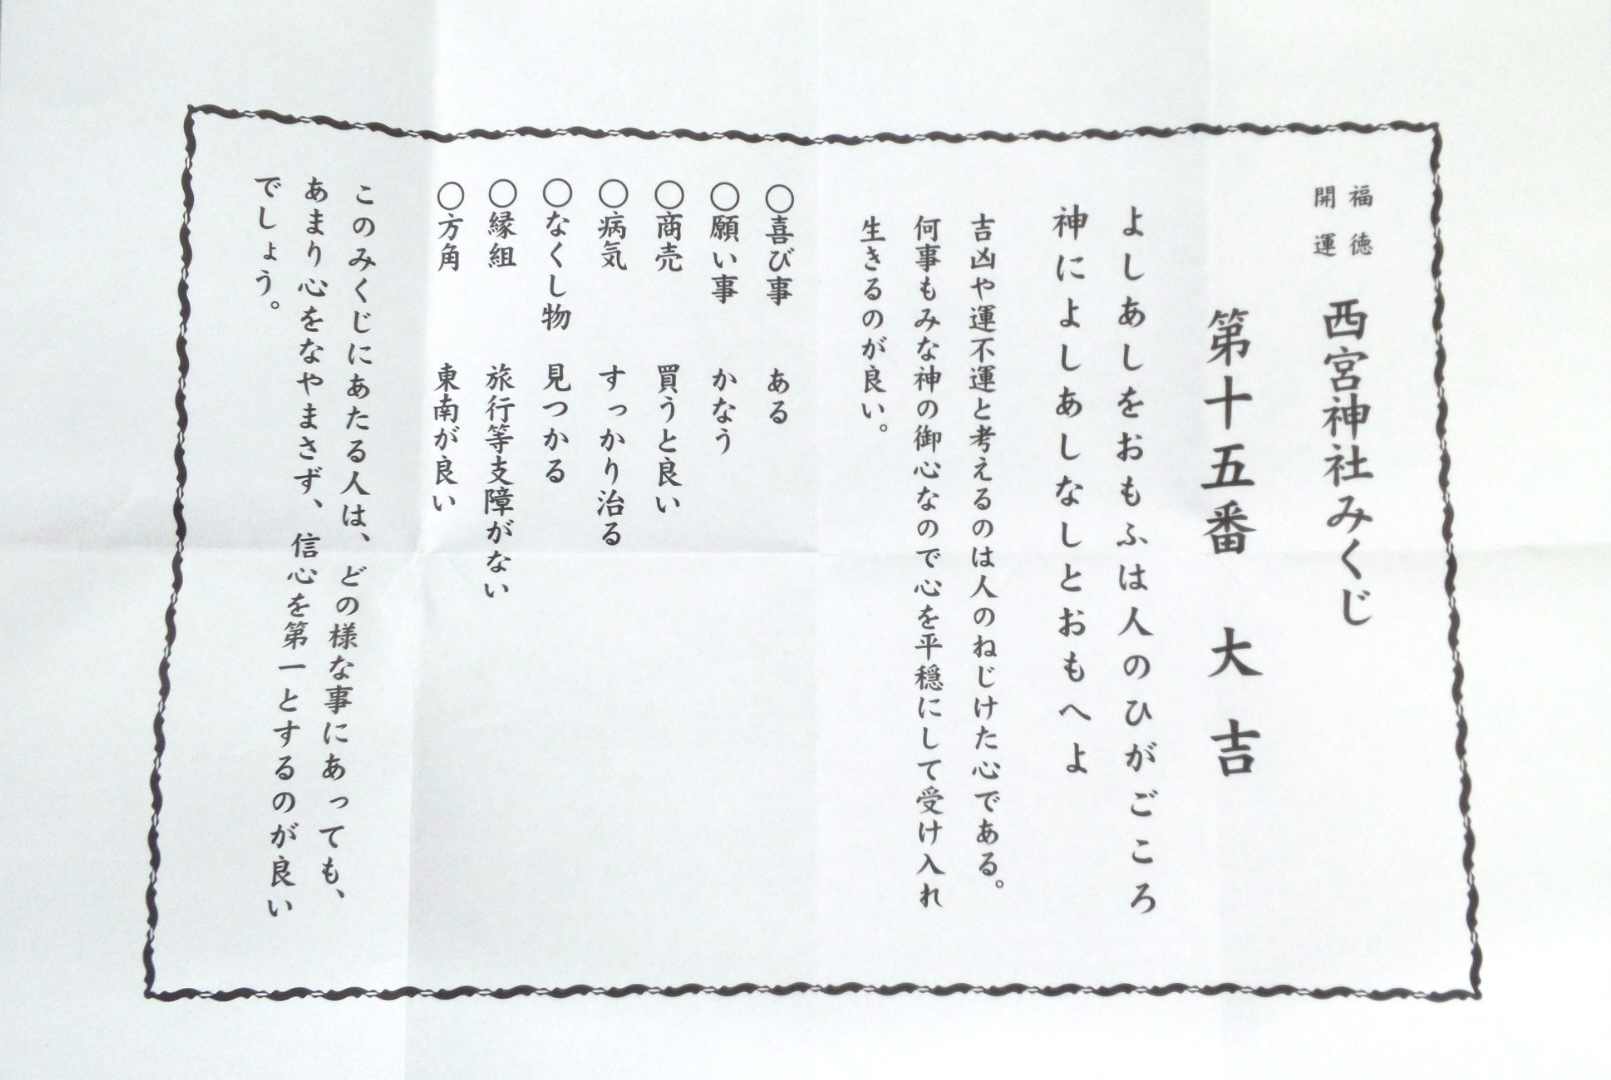 福徳
開運
西宮神社みくじ
第十五番 大吉
よしあしをおもふは人のひがごころ
神によしあしなしとおもへよ
吉凶や運不運と考えるのは人のねじけた心である。
何事もみな神の御心なので心を平穏にして受け入れ
生きるのが良い。
○喜び事 ある
○願い事 かなう
○商売 買うと良い
○病気 すっかり治る
○なくし物 見つかる
○縁組 旅行等支障がない
○方角 東南が良い
このみくじにあたる人は、どの様な事にあっても、
あまり心をなやまさず、信心を第一とするのが良い
でしょう。